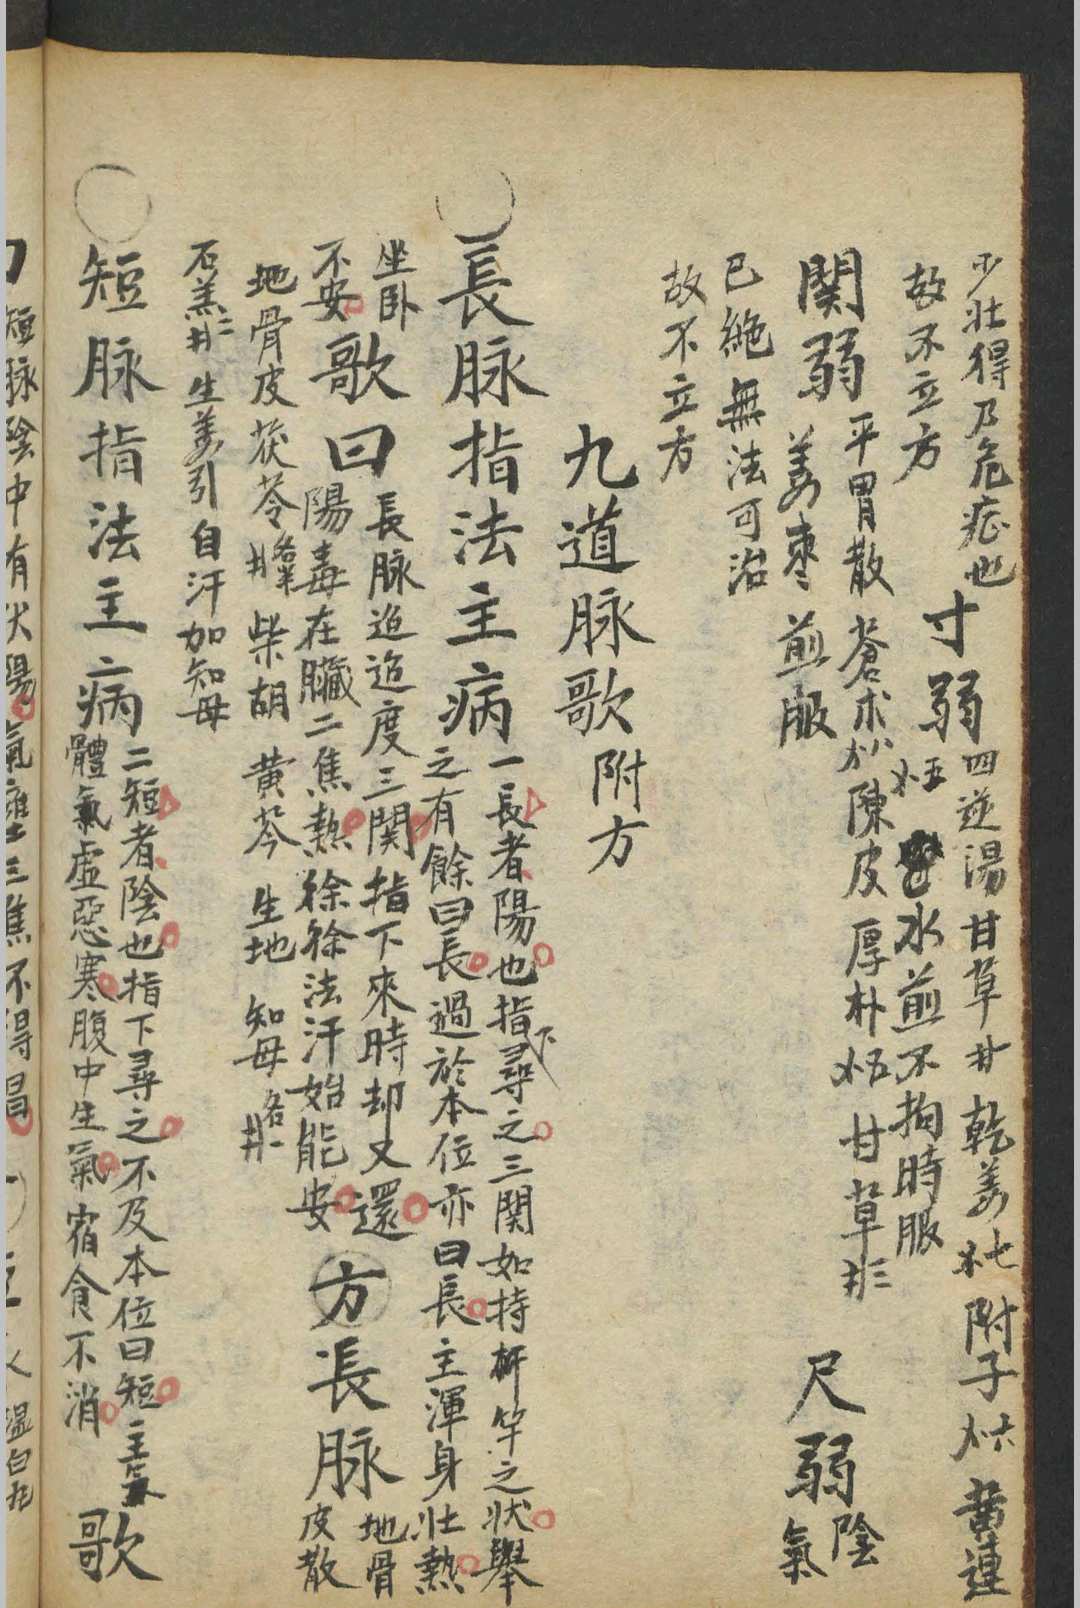 少壯得乃危症也 寸弱 四逆湯甘草 乾姜 附子 黄連
故不立方 水煎不拘時服
関弱 平胃散 蒼术 陳皮 厚朴 甘草 尺弱 陰
姜棗煎服 氣
已絶無法可治
故不立方
九道脉歌 附方
長脉指法主病 一長者陽也指下尋之三関如持竿之状舉
之有餘曰長過於本位亦曰長主渾身壮熱
坐卧
不安 歌曰 長脉迢迢度三関指下來時却又還
陽毒在臟三焦熱徐徐法汗始能安 方 長脉 地骨
皮散
地骨皮茯苓 柴胡 黄芩 生地 知母
石羔 生姜引自汗加知母
短脉指法主病 二短者陰也指下尋之不及本位曰短主
體氣虚惡寒腹中生氣宿食不消 歌
短脉陰中有伏陽氣壅三焦不得昌